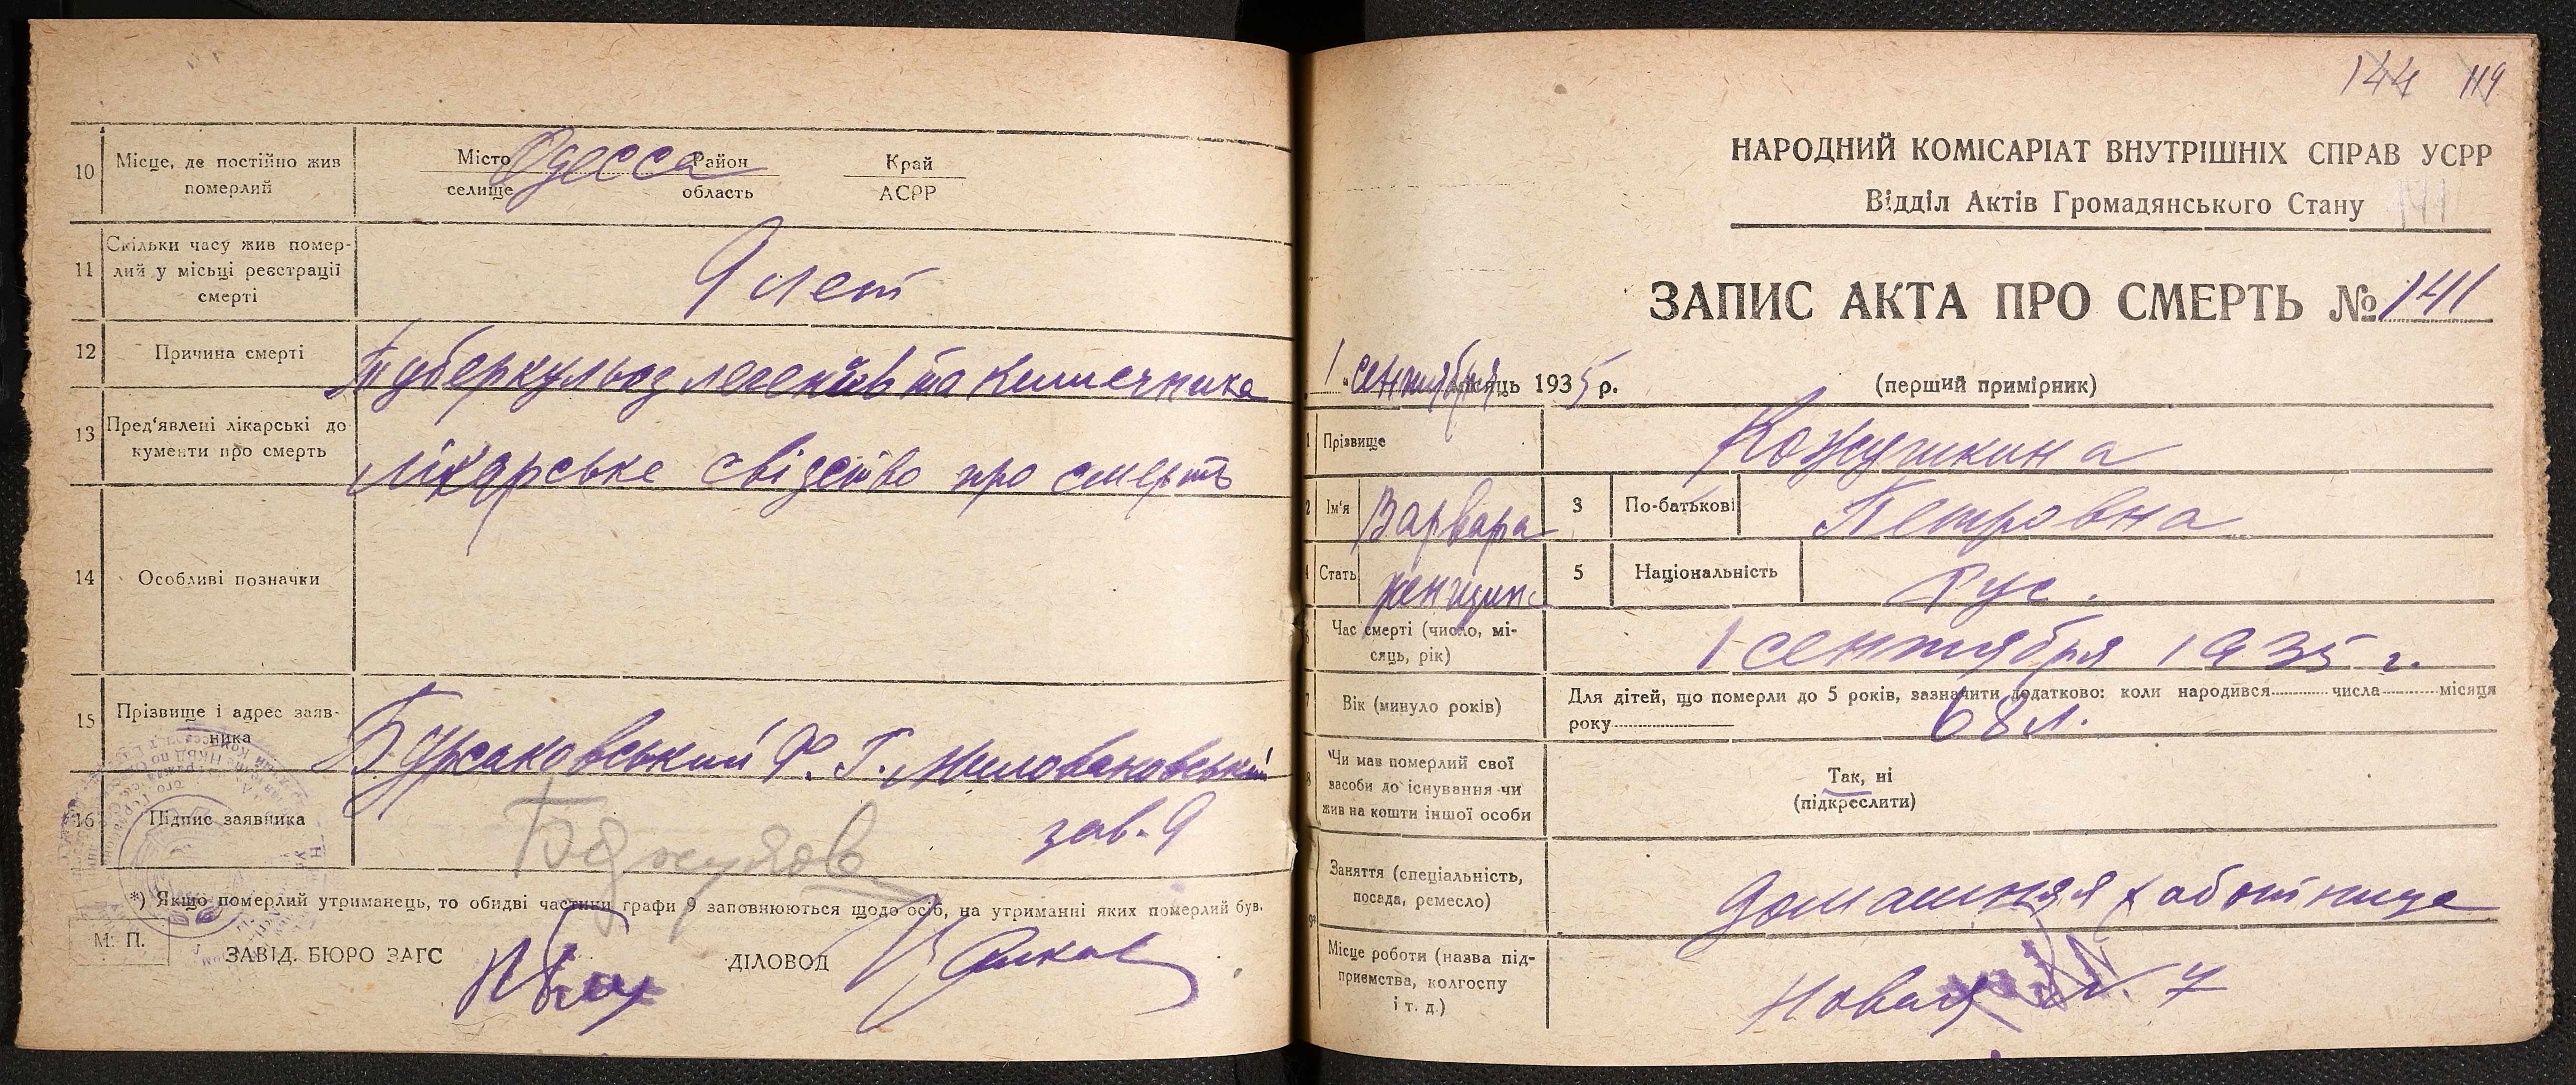 10 Місце, де постійно жив померлий
Місто селище Одесса Район область Край АСРР
11 Скільки часу жив помер-
лий у місьці реєстрації
смерті
9 лет
12 Причина смерті
Туберкульоз легенів та кишечника
13 Пред'явлені лікарські до
кументи про смерть
лікарське свідство про смерть
14 Особливі позначки
15 Прізвище і адрес заяв-
ника
Бурсаковський Ф. Г. Миловановський
зав. 9
16 Підпис заявника
*) Якщо померлий утриманець, то обидві частини графи 9 заповнюються щодо осіб, на утриманні яких померлий був.
М. П.
ЗАВІД. БЮРО ЗАГС
ДІЛОВОД
144 119
НАРОДНИЙ КОМІСАРІАТ ВНУТРІШНІХ СПРАВ УСРР
Відділ Актів Громадянського Стану 141
ЗАПИС АКТА ПРО СМЕРТЬ № 141
1 сентября місяць 1935 р.
(перший примірник)
1 Прізвище Кожушкина
2 Ім'я Варвара 3 По-батькові Петровна
4 Стать женщина 5 Національність Рус.
6 Час смерті (число, мі-
сяць, рік)
1 сентября 1935 г.
7 Вік (минуло років)
Для дітей, що померли до 5 років, зазначити додатково: коли народився числа місяця
року
68 л.
8 Чи мав померлий свої
засоби до існування чи
жив на кошти іншої особи
Так, ні
(підкреслити)
9* Заняття (спеціальність,
посада, ремесло)
домашняя работница
Місце роботи (назва під-
приємства, колгоспу
і т. д.)
Новая N. 7